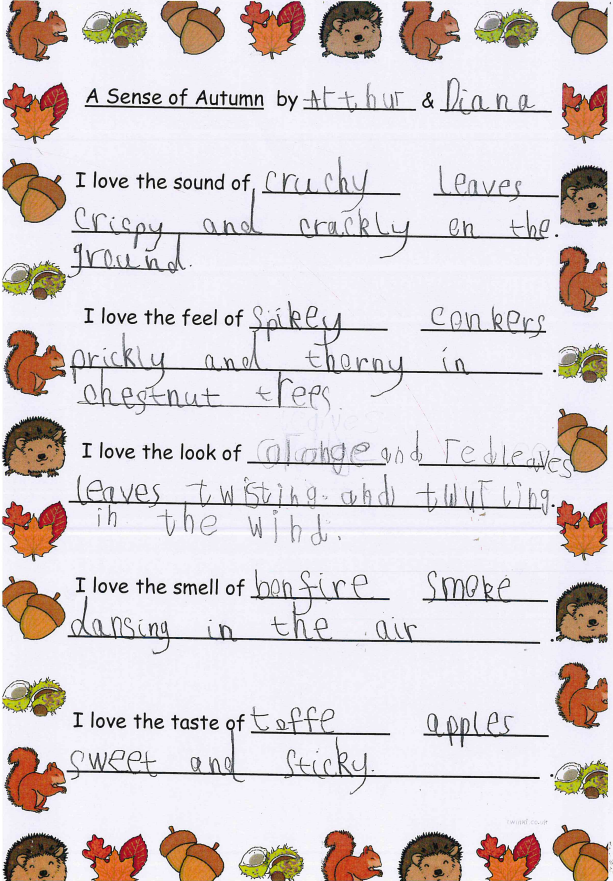 A Sense of Autumn by Arthur & Diana
I love the sound of cruchy leaves
crispy and crackly on the.
ground.
I love the feel of spikey conkers
prickly and thorny in .
chestnut trees.
I love the look of orange and red leaves
leaves twisting and twurling.
in the wind.
I love the smell of bonfire smoke
dansing in the air .
I love the taste of toffe apples
sweet and sticky. .